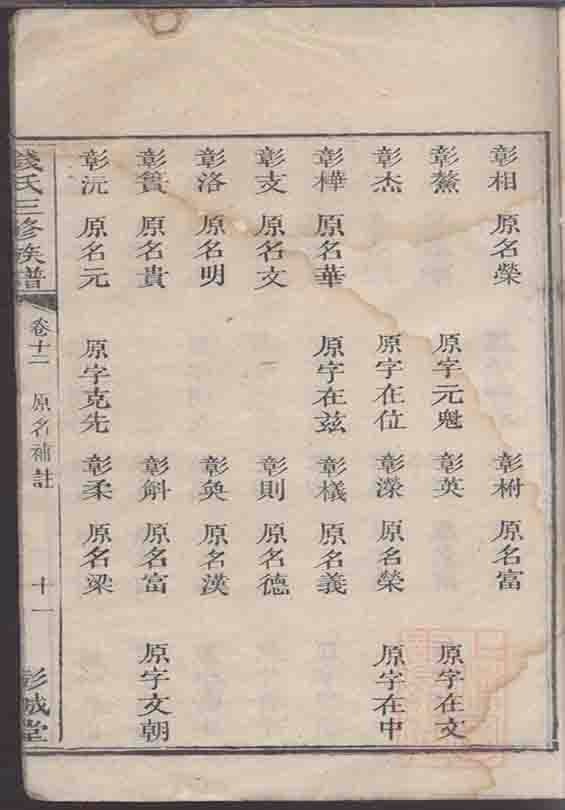 彰相 原名榮 彰柎 原名富
彰鰲 原字元魁 彰英 原字在文
彰杰 原字在位 彰濚 原名榮 原字在中
彰樺 原名華 原字在兹 彰檥 原名義
彰支 原名文 彰則 原名德
彰洛 原名明 彰奐 原名漢
彰簣 原名貴 彰斛 原名富 原字文朝
彰沅 原名元 原字克先 彰柔 原名梁
錢氏三修族譜 卷十二 原名補註 十一 彭城堂